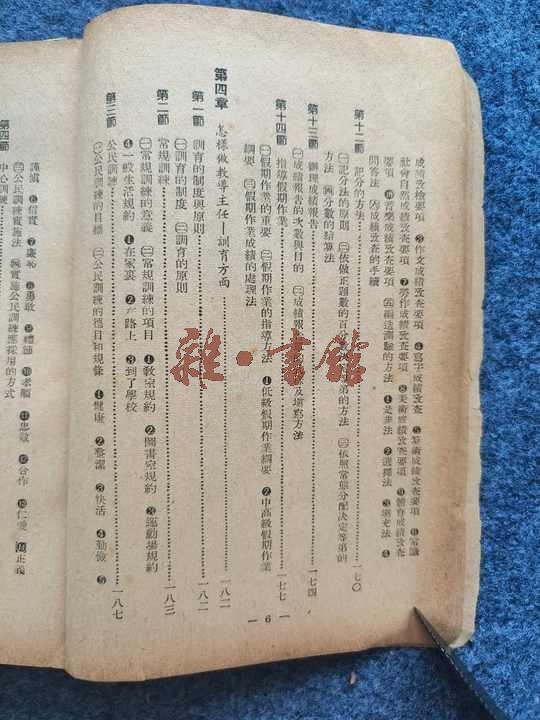 成績攷檢要項 ❸作文成績攷查要項 ❹寫字成績攷查 ❺算術成績攷查要項 ❻常識
社會自然成績攷查要項 ❼勞作成績攷查要項 ❽美術成績攷查要項 ❾體育成績攷查
要項 ❿音樂成績攷查要項 ㈣編造測驗的方法 ❶是非法 ❷選擇法 ❸填充法 ❹
問答法 ㈤成績攷查的手續
第十二節 記分的方法 一七〇
㈠記分法的原則 ㈡依做正題數的百分數決定等第的方法 ㈢依照常態分配決定等第的
方法 ㈣分數的結算法
第十三節 辦理成績報告 一七四
㈠成績報告的次數與目的 ㈡成績報告的 及填寫方法
第十四節 指導假期作業 一七七
㈠假期作業的重要 ㈡假期作業的指導方法 ❶低級假期作業綱要 ❷中高級假期作業
綱要 ㈢假期作業成績的處理法
第四章 怎樣做教導主任—訓育方面 一八二
第一節 訓育的制度與原則 一八二
㈠訓育的制度 ㈡訓育的原則
第二節 常規訓練 一八三
㈠常規訓練的意義 ㈡常規訓練的項目 ❶教室規約 ❷圖書室規約 ❸運動場規約
❹一般生活規約 ❶在家裏 ❷在路上 ❸到了學校
第三節 公民訓練 一八七
㈠公民訓練的目標 ㈡公民訓練的德目和規條 ❶健康 ❷整潔 ❸快活 ❹勤儉 ❺
— 6 —
謹慎 ❻信實 ❼廉恥 ❽勇敢 ❾禮節 ❿孝順 ⓫忠敬 ⓬合作 ⓭仁愛 ⓮正義
㈢公民訓練實施法 ㈣實施公民訓練應採用的方式
第四節 中心訓練
雜·書館